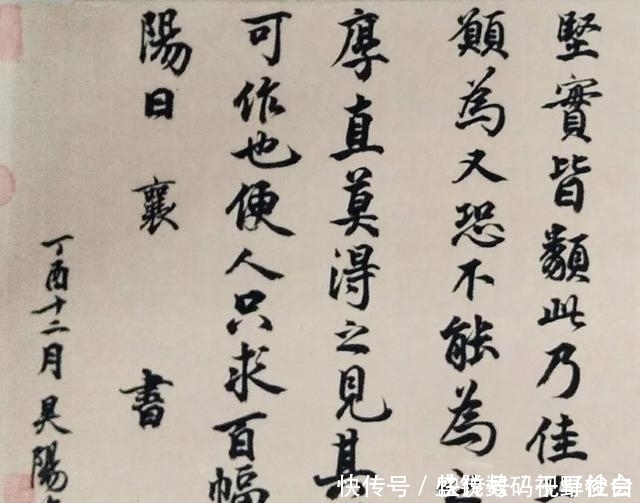 堅實皆類此乃佳
願為又恐不能為
厚直莫得之見其
可作也便人只求百幅
陽日 襄 書
丁酉十二月昊陽
快传号